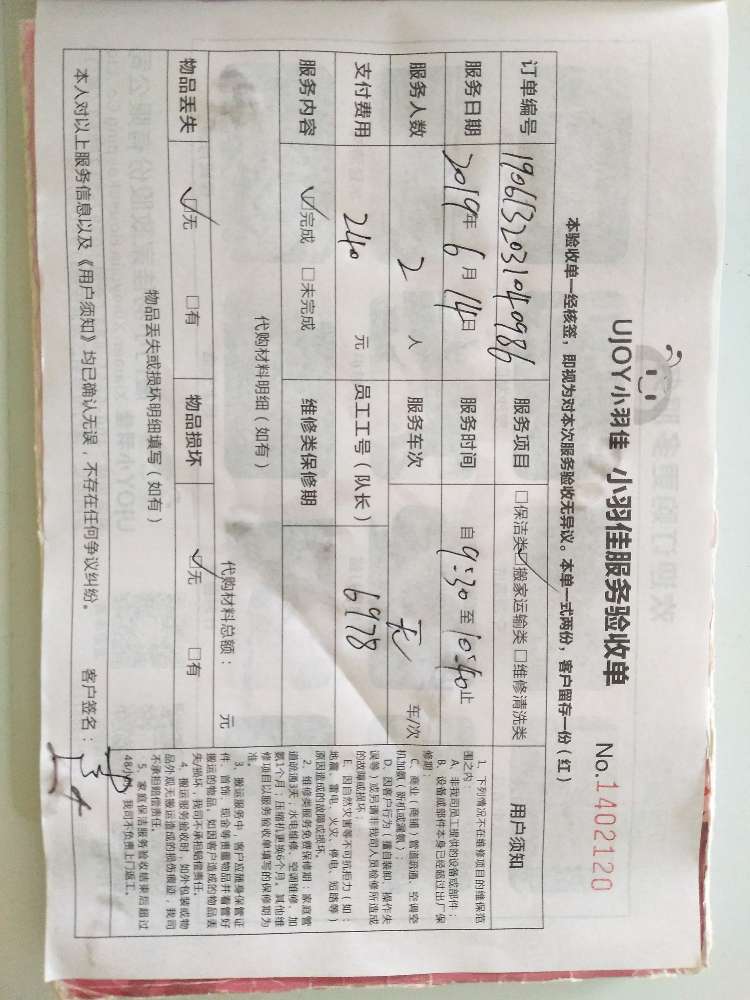 UJOY小羽佳 小羽佳服务验收单
No.1402120
本验收单一经核签，即视为对本次服务验收无异议。本单一式两份，客户留存一份（红）
订单编号 190613203104098б 服务项目 □保洁类☑搬家运输类□维修清洗类
服务日期 2019年6月14日 服务时间 自9:30至10:40止
服务人数 2 人 服务车次 无 车/次
支付费用 240 元 员工工号（队长） 6978
服务内容 ☑完成 □未完成 维修类保修期
代购材料明细（如有）
代购材料总额： 元
物品丢失 ☑无 □有 物品损坏 ☑无 □有
物品丢失或损坏明细填写（如有）
本人对以上服务信息以及《用户须知》均已确认无误，不存在任何争议纠纷。 客户签名：
用户须知
1、下列情况不在维修项目的维保范
围之内：
A、非我司员工提供的设备或部件；
B、设备或部件本身已经超过出厂保
修期；
C、商业（商铺）管道疏通、空调空
机加氨（拆机或漏氨）；
D、因客户行为（擅自装卸、操作失
误等）或另请非我司人员检修所造成
的故障或损坏；
E、因自然灾害等不可抗拒力（如：
地震、雷电、火灾、停电、短路等）
原因造成的故障或损坏。
2、维修类服务免费保修期：家庭管
道疏通3天，水电维修、空调维修、加
氨1个月；压缩机更换6个月。其他维
修项目以服务验收单填写的保修期为
准。
3、搬运服务中，客户应随身保管证
件、首饰、现金等贵重物品并看管好
搬运的物品，如因客户造成的物品丢
失/损坏，我司不承担赔偿责任。
4、搬运服务验收时，如外包装或物
品外观无搬运造成的损伤痕迹，我司
不承担赔偿责任。
5、家庭保洁服务验收结束后超过
48小时，我司不负责上门返工。